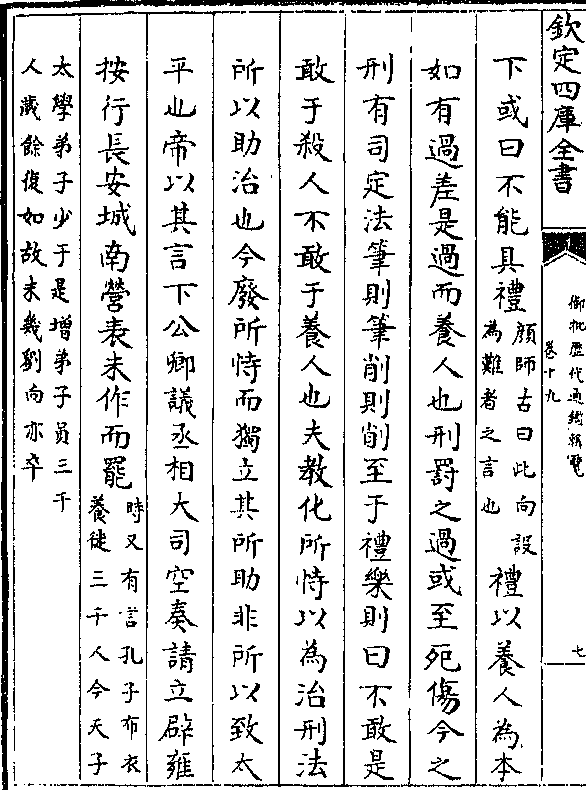 欽定四庫全書
御批歷代通鑑輯覽
卷十九
七
下或曰不能具禮顔師古曰此向設為難者之言也禮以養人為本
如有過差是過而養人也刑罰之過或至死傷今之
刑有司定法筆則筆削則削至于禮樂則曰不敢是
敢于殺人不敢于養人也夫教化所恃以為治刑法
所以助治也今廢所恃而獨立其所助非所以致太
平也帝以其言下公卿議丞相大司空奏請立辟雍
按行長安城南營表未作而罷時又有言孔子布衣養徒三千人今天子
太學弟子少于是增弟子員三千
人歲餘復如故未幾劉向亦卒